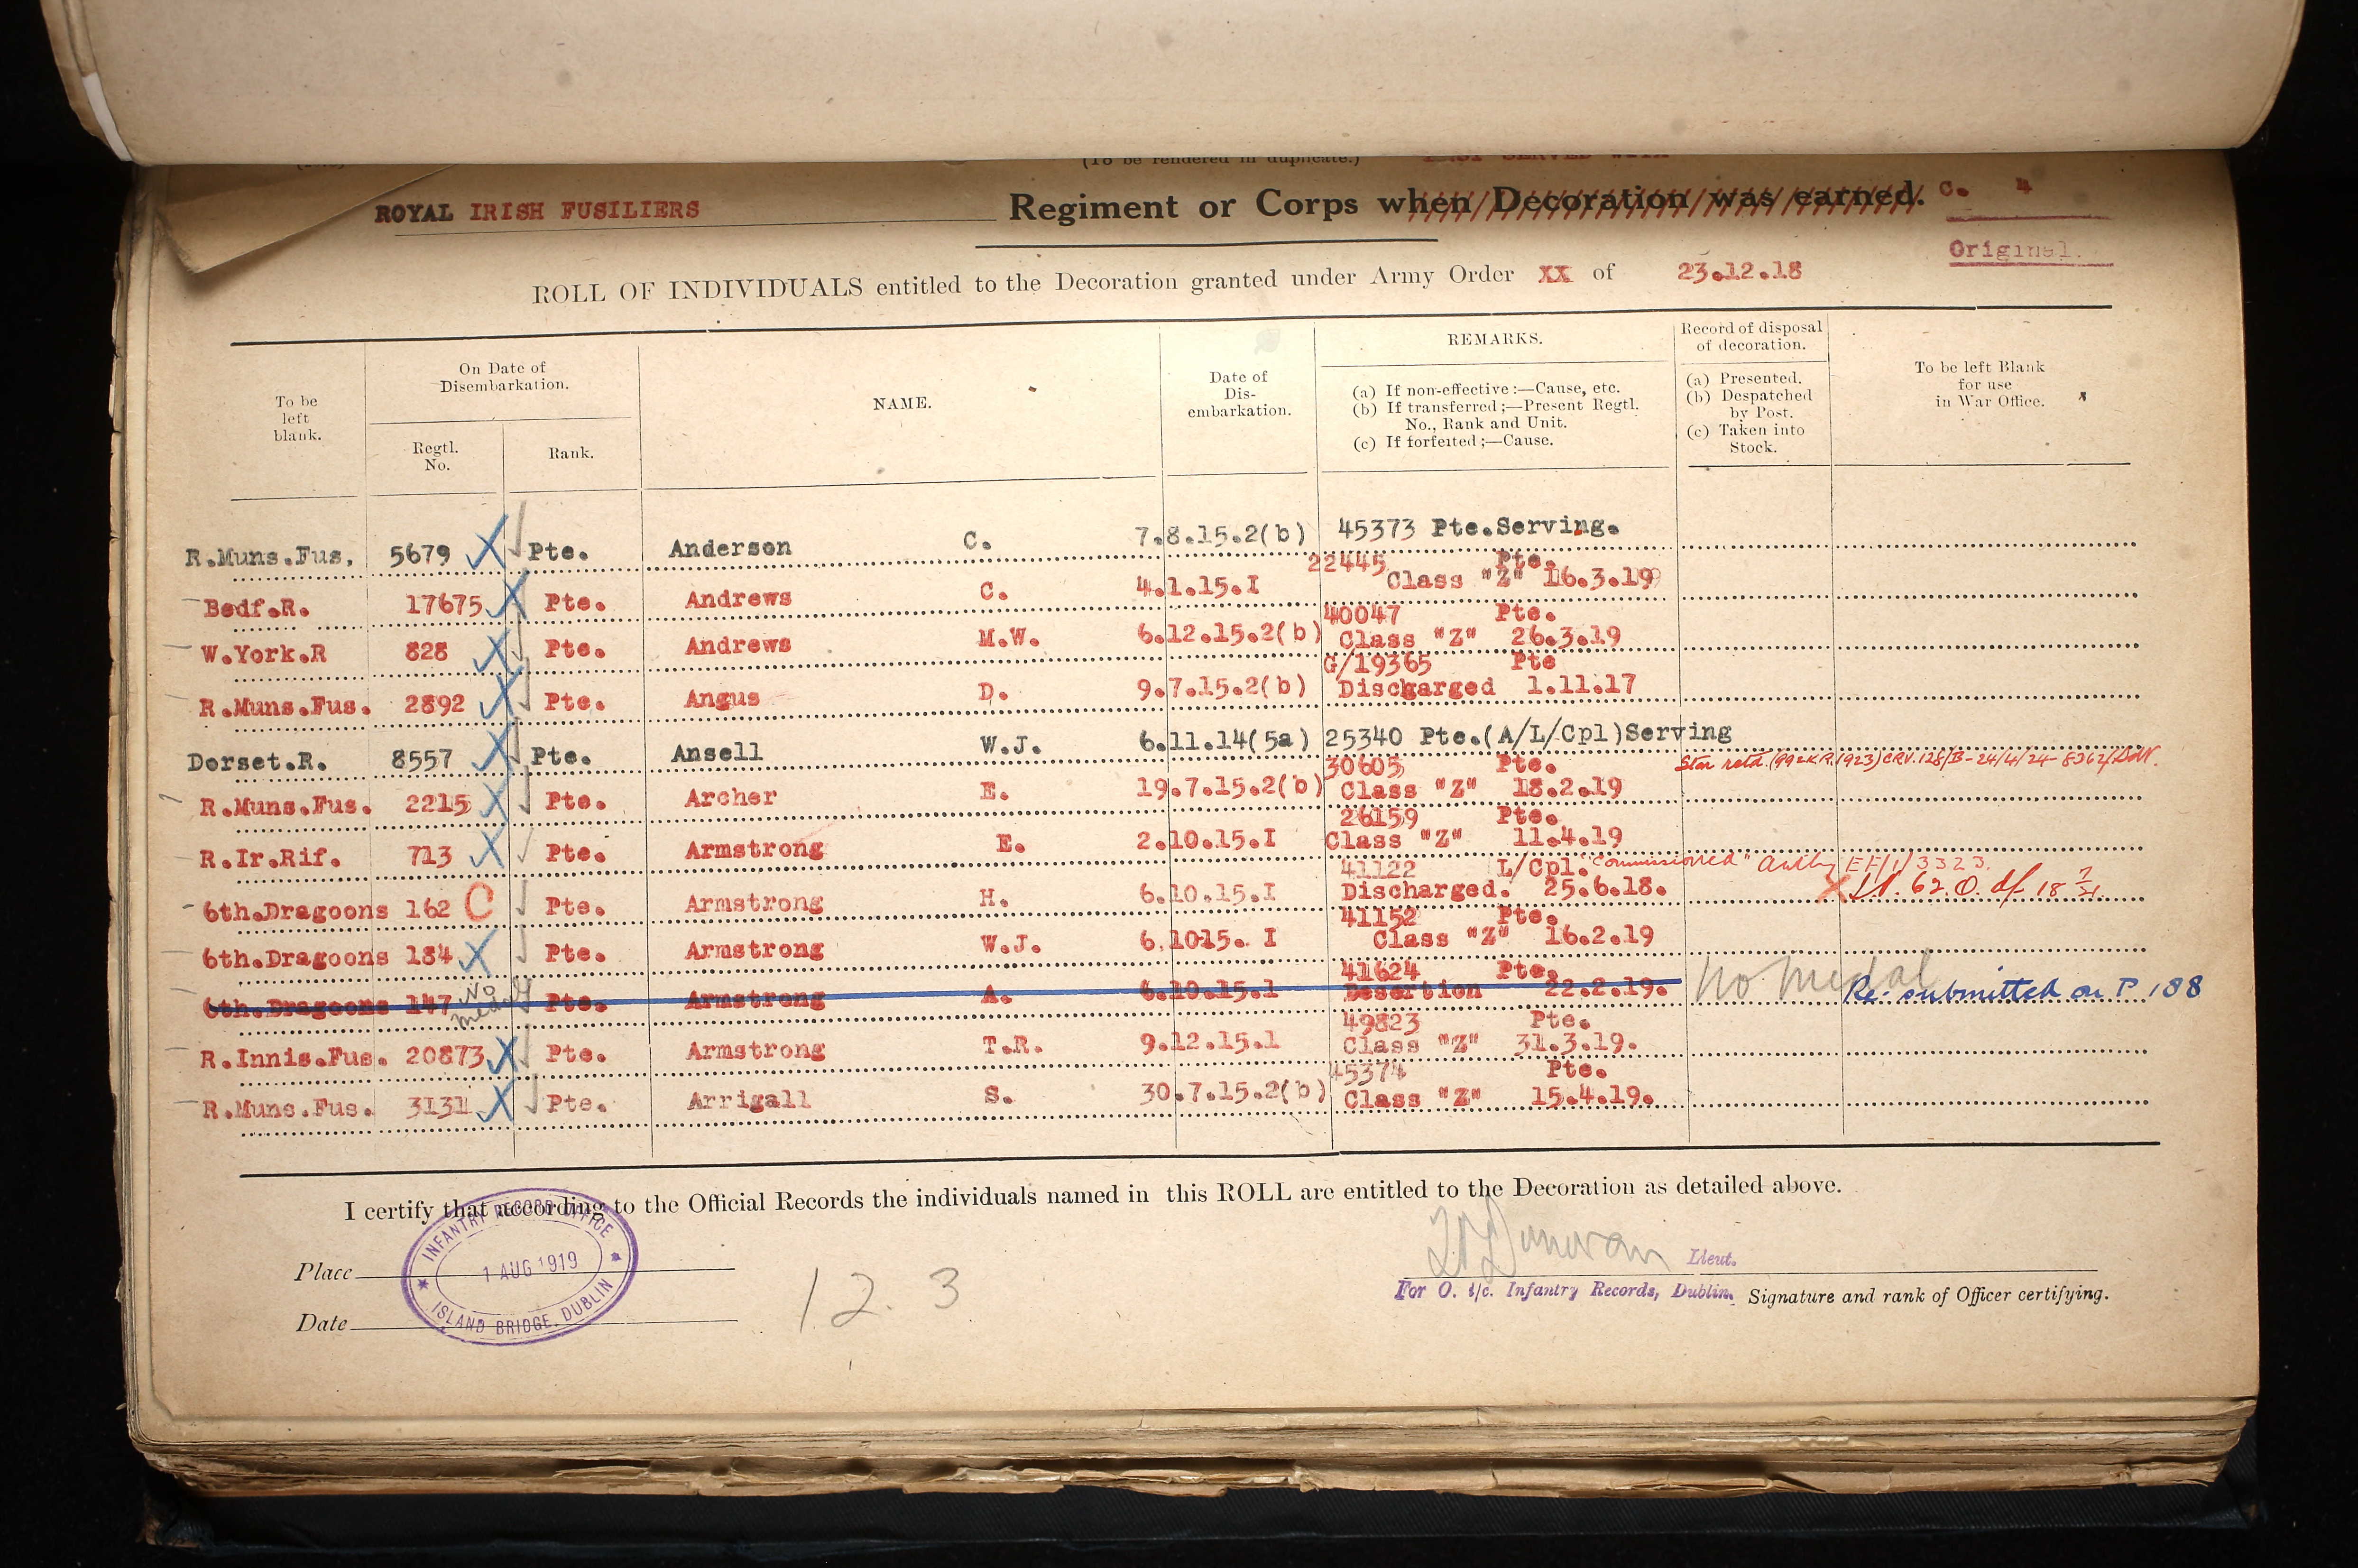 (To be rendered in duplicate.) LAST SERVED WITH
ROYAL IRISH FUSILIERS Regiment or Corps when Decoration was earned. C. 4
Original.
ROLL OF INDIVIDUALS entitled to the Decoration granted under Army Order XX of 23.12.18
To be left blank.
On Date of Disembarkation.
Regtl. No.
Rank.
NAME.
Date of Dis-embarkation.
REMARKS.
(a) If non-effective:—Cause, etc.
(b) If transferred;—Present Regtl. No., Rank and Unit.
(c) If forfeited;—Cause.
Record of disposal of decoration.
(a) Presented.
(b) Despatched by Post.
(c) Taken into Stock.
To be left Blank for use in War Office.
R.Muns.Fus. 5679 Pte. Anderson C. 7.8.15.2(b) 45373 Pte.Serving.
22445 Pte.
Bedf.R. 17675 Pte. Andrews C. 4.1.15.I Class "Z" 16.3.19
40047 Pte.
W.York.R 828 Pte. Andrews M.W. 6.12.15.2(b) Class "Z" 26.3.19
G/19365 Pte
R.Muns.Fus. 2892 Pte. Angus D. 9.7.15.2(b) Discharged 1.11.17
Dorset.R. 8557 Pte. Ansell W.J. 6.11.14(5a) 25340 Pte.(A/L/Cpl)Serving
30605 Pte. Star retd. (992K.R.1923) CRV.128/B-24/4/24-8362/
R.Muns.Fus. 2215 Pte. Archer E. 19.7.15.2(b) Class "Z" 18.2.19
26159 Pte.
R.Ir.Rif. 713 Pte. Armstrong E. 2.10.15.I Class "Z" 11.4.19
41122 L/Cpl. "Commissioned" Authy EF/1/3323.
6th.Dragoons 162 C Pte. Armstrong H. 6.10.15.I Discharged. 25.6.18. X 62. O. df 18
41152 Pte.
6th.Dragoons 184 Pte. Armstrong W.J. 6.1015. I Class "Z" 16.2.19
41624 Pte.
6th.Dragoons 147 No medal Pte. Armstrong A. 6.10.15.1 Desertion 22.2.19. No Medal Re-submitted on P 188
49823 Pte.
R.Innis.Fus. 20873 Pte. Armstrong T.R. 9.12.15.1 Class "Z" 31.3.19.
45374 Pte.
R.Muns.Fus. 3131 Pte. Arrigall S. 30.7.15.2(b) Class "Z" 15.4.19.
I certify that according to the Official Records the individuals named in this ROLL are entitled to the Decoration as detailed above.
INFANTRY RECORD OFFICE
1 AUG 1919
ISLAND BRIDGE, DUBLIN
Place
Date
12. 3
Lieut.
For O. i/c. Infantry Records, Dublin. Signature and rank of Officer certifying.